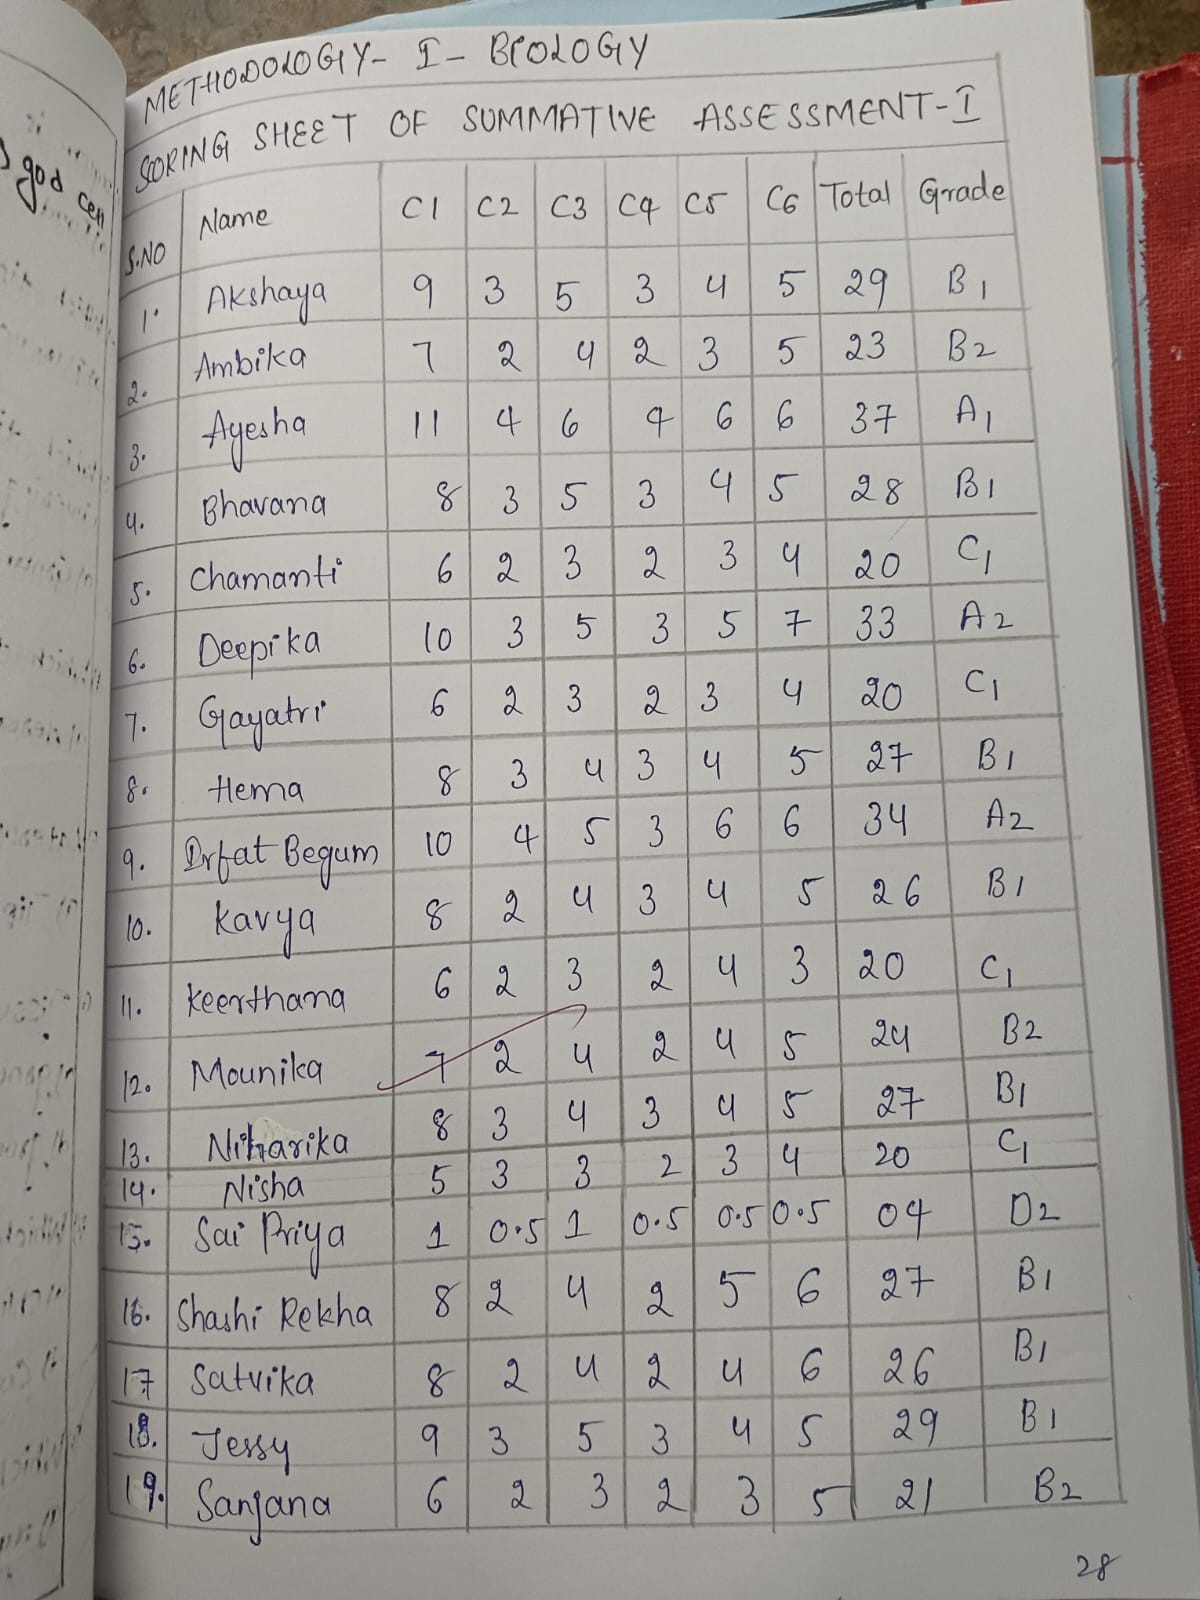 god cell
METHODOLOGY- I - BIOLOGY
SCORING SHEET OF SUMMATIVE ASSESSMENT-I
S.NO Name C1 C2 C3 C4 C5 C6 Total Grade
1. Akshaya 9 3 5 3 4 5 29 B1
2. Ambika 7 2 4 2 3 5 23 B2
3. Ayesha 11 4 6 4 6 6 37 A1
4. Bhavana 8 3 5 3 4 5 28 B1
5. Chamanti 6 2 3 2 3 4 20 C1
6. Deepika 10 3 5 3 5 7 33 A2
7. Gayatri 6 2 3 2 3 4 20 C1
8. Hema 8 3 4 3 4 5 27 B1
9. Irfat Begum 10 4 5 3 6 6 34 A2
10. Kavya 8 2 4 3 4 5 26 B1
11. Keerthana 6 2 3 2 4 3 20 C1
12. Mounika 7 2 4 2 4 5 24 B2
13. Niharika 8 3 4 3 4 5 27 B1
14. Nisha 5 3 3 2 3 4 20 C1
15. Sai Priya 1 0.5 1 0.5 0.5 0.5 04 D2
16. Shashi Rekha 8 2 4 2 5 6 27 B1
17 Satvika 8 2 4 2 4 6 26 B1
18. Jessy 9 3 5 3 4 5 29 B1
19. Sanjana 6 2 3 2 3 5 21 B2
28